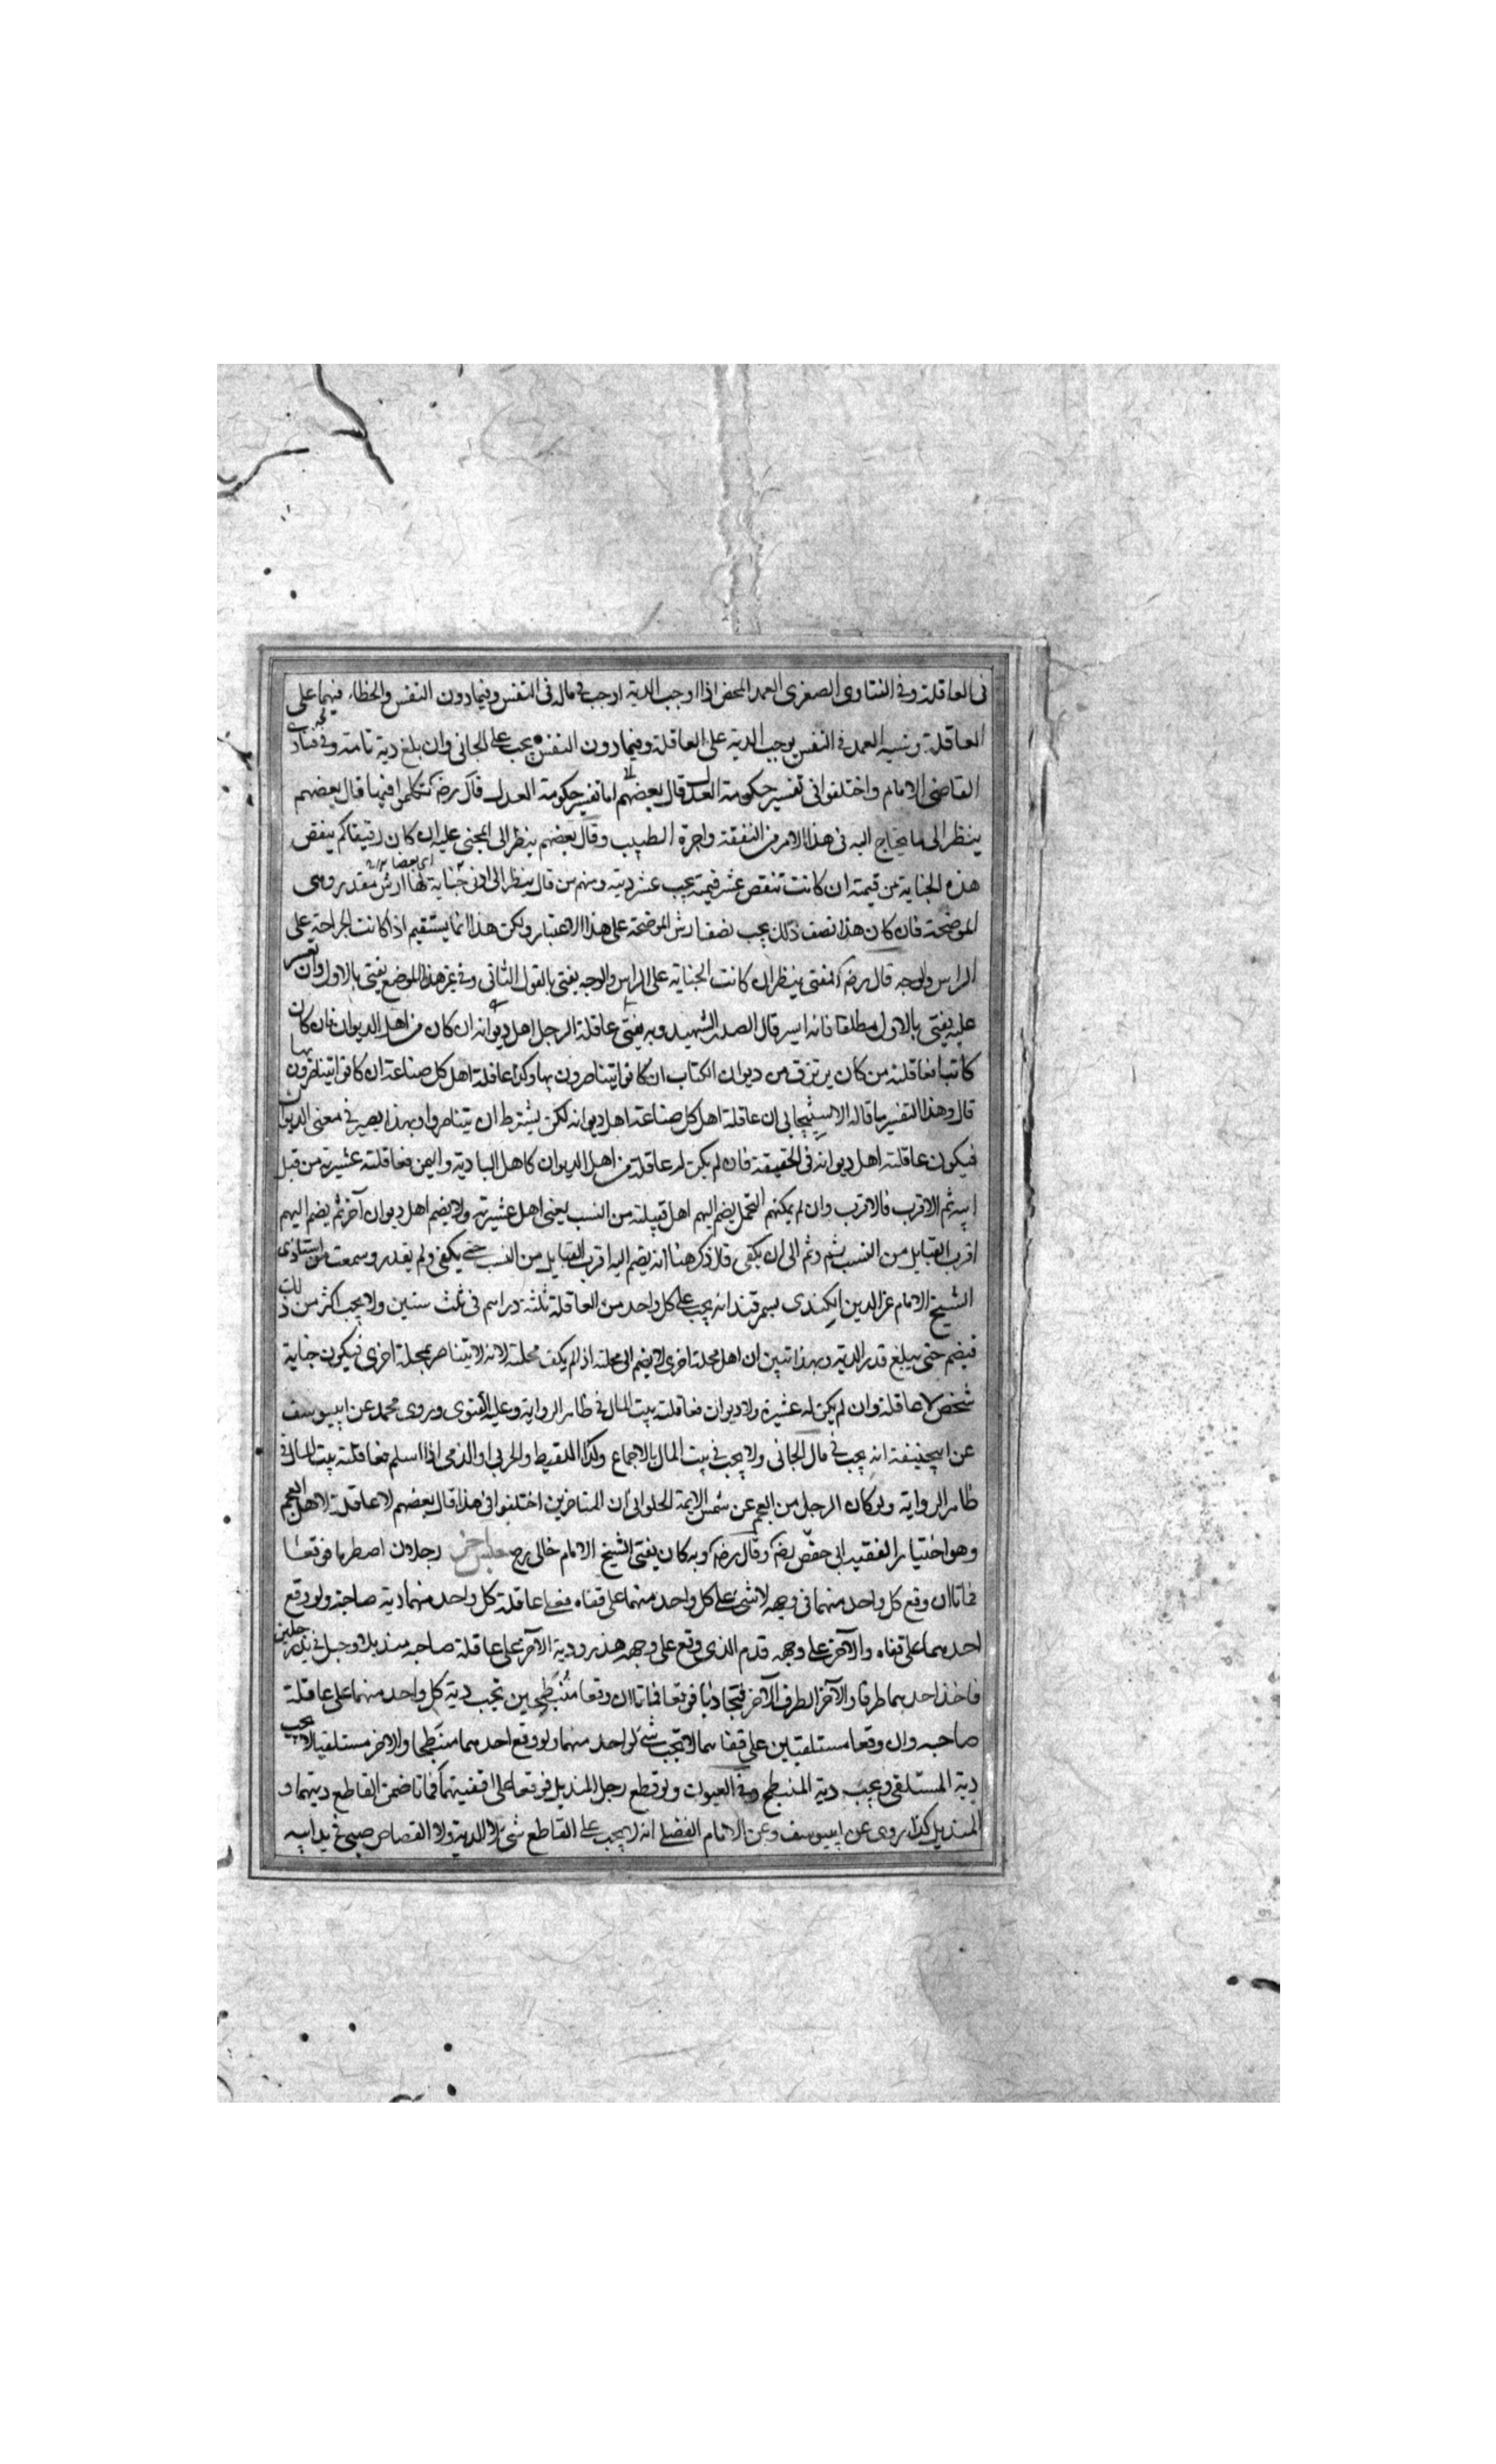 فى العاقلة وفى الفتاوى الصغرى العمد المحض اذا اوجب الدية اوجب فى ماله فى النفس وفيما دون النفس والخطاء فيهما على
العاقلة وشبه العمد فى النفس يوجب الدية على العاقلة وفيما دون النفس يجب على الجانى وان بلغ دية تامة وفى فتاوى
القاضى الامام واختلفوا فى تفسير حكومة العدل قال بعضهم لا اما تفسير حكومة العدل قال رضه تكلموا فيها قال بعضهم
ينظر الى ما يحتاج اليه فى هذا الامر من النفقة واجرة الطبيب وقال بعضهم ينظر الى المجنى عليه ان كان رقيقا كم ينقص
هذه الجناية من قيمته ان كانت تنقص عشر قيمته يجب عشر ديته ومنهم من قال ينظر الى ادنى جناية لها ارش مقدر وهى
الموضحة فان كان هذا نصف ذلك يجب نصف ارش الموضحة على هذا الاعتبار ولكن هذا انما يستقيم اذا كانت الجراحة على
الراس والوجه قال رضه المفتى ينظر ان كانت الجناية على الراس والوجه يفتى بالقول الثانى وفى غير هذا الموضع يفتى بالاول وان تعسر
عليه يفتى بالاول مطلقا فانه ايسر قال الصدر الشهيد وبه يفتى عاقلة الرجل اهل ديوانه ان كان من اهل الديوان فان كان
كاتبا فعاقلته من كان يرتزق من ديوان الكتاب ان كانوا يتناصرون بها وكذا عاقلة اهل كل صناعة ان كانوا يتناصرون بها
قال وهذا التفسير ما قاله الاسبيجابى ان عاقلة اهل كل صناعة اهل ديوانه لكن يشترط ان يتناصروا بهذا يصير فى معنى الديوان
فيكون عاقلته اهل ديوانه فى الحقيقة فان لم يكن له عاقلة من اهل الديوان كاهل البادية واليمن فعاقلته عشيرته من قبل
ابيه ثم الاقرب فالاقرب وان لم يمكنهم التحمل يضم اليهم اهل قبيلته من النسب يعنى اهل عشيرته ولا يضم اهل ديوان آخر ثم يضم اليهم
اقرب القبايل من النسب ثم وثم الى ان يكفى قلا ذكر هنا انه يضم اليه اقرب القبايل من النسب حتى يكفى ولم يقدر وسمعت من استاذى
الشيخ الامام عز الدين الكندى بسمرقند انه يجب على كل واحد من العاقلة ثلثة دراهم فى ثلث سنين ولا يجب اكثر من ذلك
فيضم حتى يبلغ قدر الدية وبهذا تبين ان اهل محلة اخرى لا يضم الى محلته اذا لم يكف محلته لانه لا يتناصر بمحلة اخرى فيكون جناية
شخص لا عاقلة وان لم يكن له عشيرة ولا ديوان فعاقلته بيت المال فى ظاهر الرواية وعليه الفتوى وروى محمد عن ابيوسف
عن ابيحنيفة انه يجب فى مال الجانى ولا يجب فى بيت المال بالاجماع وكذا اللقيط والحربى او الذمى اذا اسلم فعاقلته بيت المال فى
ظاهر الرواية ولو كان الرجل من العجم عن شمس الايمة الحلوانى ان المتاخرين اختلفوا فى هذا قال بعضهم لا عاقلة لاهل العجم
وهو اختيار الفقيه ابى جعفر رضه وقال رضه وبه كان يفتى الشيخ الامام خالى رح رجلان اصطدما فوقعا
فماتا ان وقع كل واحد منهما فى وجهه لا شئ على كل واحد منهما على قفاه فعلى عاقلة كل واحد منهما دية صاحبه ولو وقع
احدهما على قفاه والآخر على وجهه قدم الذى وقع على وجهه هدر ودية الآخر على عاقلة صاحبه منديل او حبل فى يد رجلين
فاخذ احدهما طرفا والآخر الطرف الآخر فتجاذبا فوقعا فماتا ان وقعا منبطحين تجب دية كل واحد منهما على عاقلة
صاحبه وان وقعا مستلقيين على قفاهما لا تجب شئ لواحد منهما ولو وقع احدهما منبطحا والاخر مستلقيا لا يجب
دية المستلقى ويجب دية المنبطح وفى العيون ولو قطع رجل المنديل فوقعا على اقفيتهما فماتا ضمن القاطع ديتهما و
المنديل كذا روى عن ابيوسف وعن الامام الفضلى انه لا يجب على القاطع شئ لا الدية ولا القصاص صبى فى يد ابيه